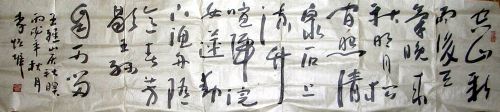 空山新
雨後天
氣晚來
秋明月松
間照清
泉石上
流竹
喧歸浣
女蓮動
下漁舟隨
意春芳
歇王孫
自可留
王維山居秋暝
丙戌年秋月
李